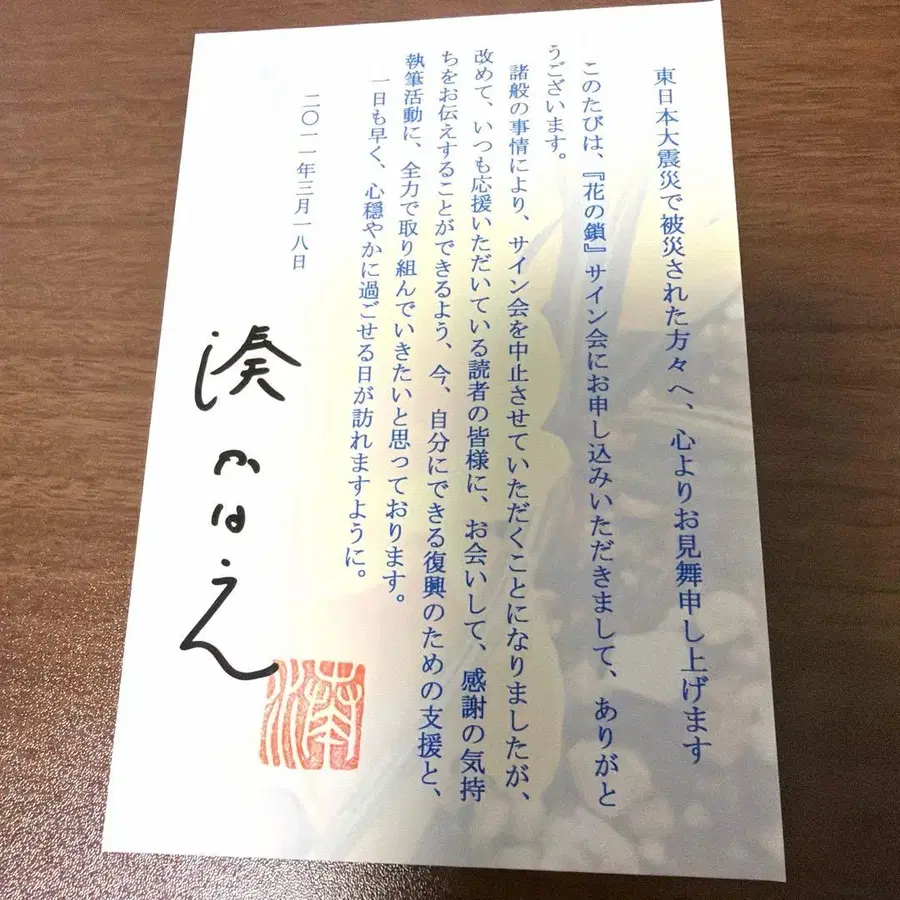 東日本大震災で被災された方々へ、心よりお見舞申し上げます
このたびは、『花の鎖』サイン会にお申し込みいただきまして、ありがと
うございます。
諸般の事情により、サイン会を中止させていただくことになりましたが、
改めて、いつも応援いただいている読者の皆様に、お会いして、感謝の気持
ちをお伝えすることができるよう、今、自分にできる復興のための支援と、
執筆活動に、全力で取り組んでいきたいと思っております。
一日も早く、心穏やかに過ごせる日が訪れますように。
二〇一一年三月一八日
湊かなえ
湊